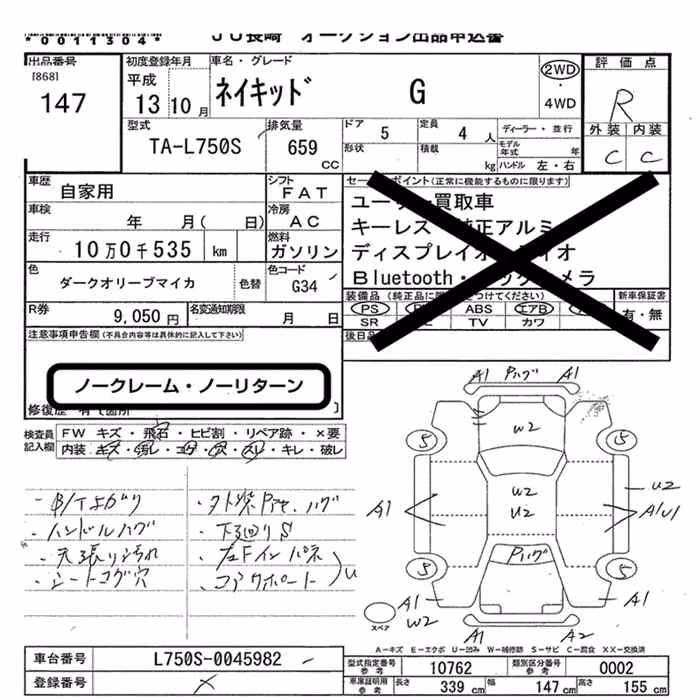 *0011304* JU長崎 オークション出品申込書
出品番号 [868] 147
初度登録年月 平成 13年 10月
車名・グレード ネイキッド G
2WD・4WD
評価点 R
外装 C 内装 C
型式 TA-L750S
排気量 659 CC
ドア 5
定員 4人
形状
積載 kg
ディーラー・並行
モデル年式 年
ハンドル 左・右
車歴 自家用
シフト FAT
車検 年 月( 日)
冷房 AC
走行 10万0千535 km
燃料 ガソリン
色 ダークオリーブマイカ 色替
色コード G34
R券 9,050円
名変通知期限 月 日
セールスポイント(正常に機能するものに限ります)
ユーザー買取車
キーレス・純正アルミ
ディスプレイオーディオ
Bluetooth・バックカメラ
装備品(純正品に限り○をつけてください)
PS ABS エアB
SR TV カワ
新車保証書 有・無
後日品
注意事項申告欄(不具合内容等は具体的に記入して下さい)
ノークレーム・ノーリターン
修復歴 有て箇所
検査員記入欄
FW キズ・飛石・ヒビ割・リペア跡・×要
内装 キズ・汚レ・コゲ・穴・スレ・キレ・破レ
・B/Tよがり
・ハンドルハゲ
・天張りよごれ
・シートコゲ穴
・下廻りS
・左Fインパネ
・コアサポート U
A1 Pハゲ A1
W2
5 5
W2
U2
A1
U2
A1U1
Pハゲ
5 5
A1
W2
A1
A1 A2
スペア
A−キズ E−エクボ U−凹み W−補修跡 S−サビ C−腐食 XX−交換済
車台番号 L750S-0045982
登録番号 ×
型式指定番号 参考 10762
類別区分番号 参考 0002
車庫証明用 参考 長さ 339 cm 幅 147 cm 高さ 155 cm